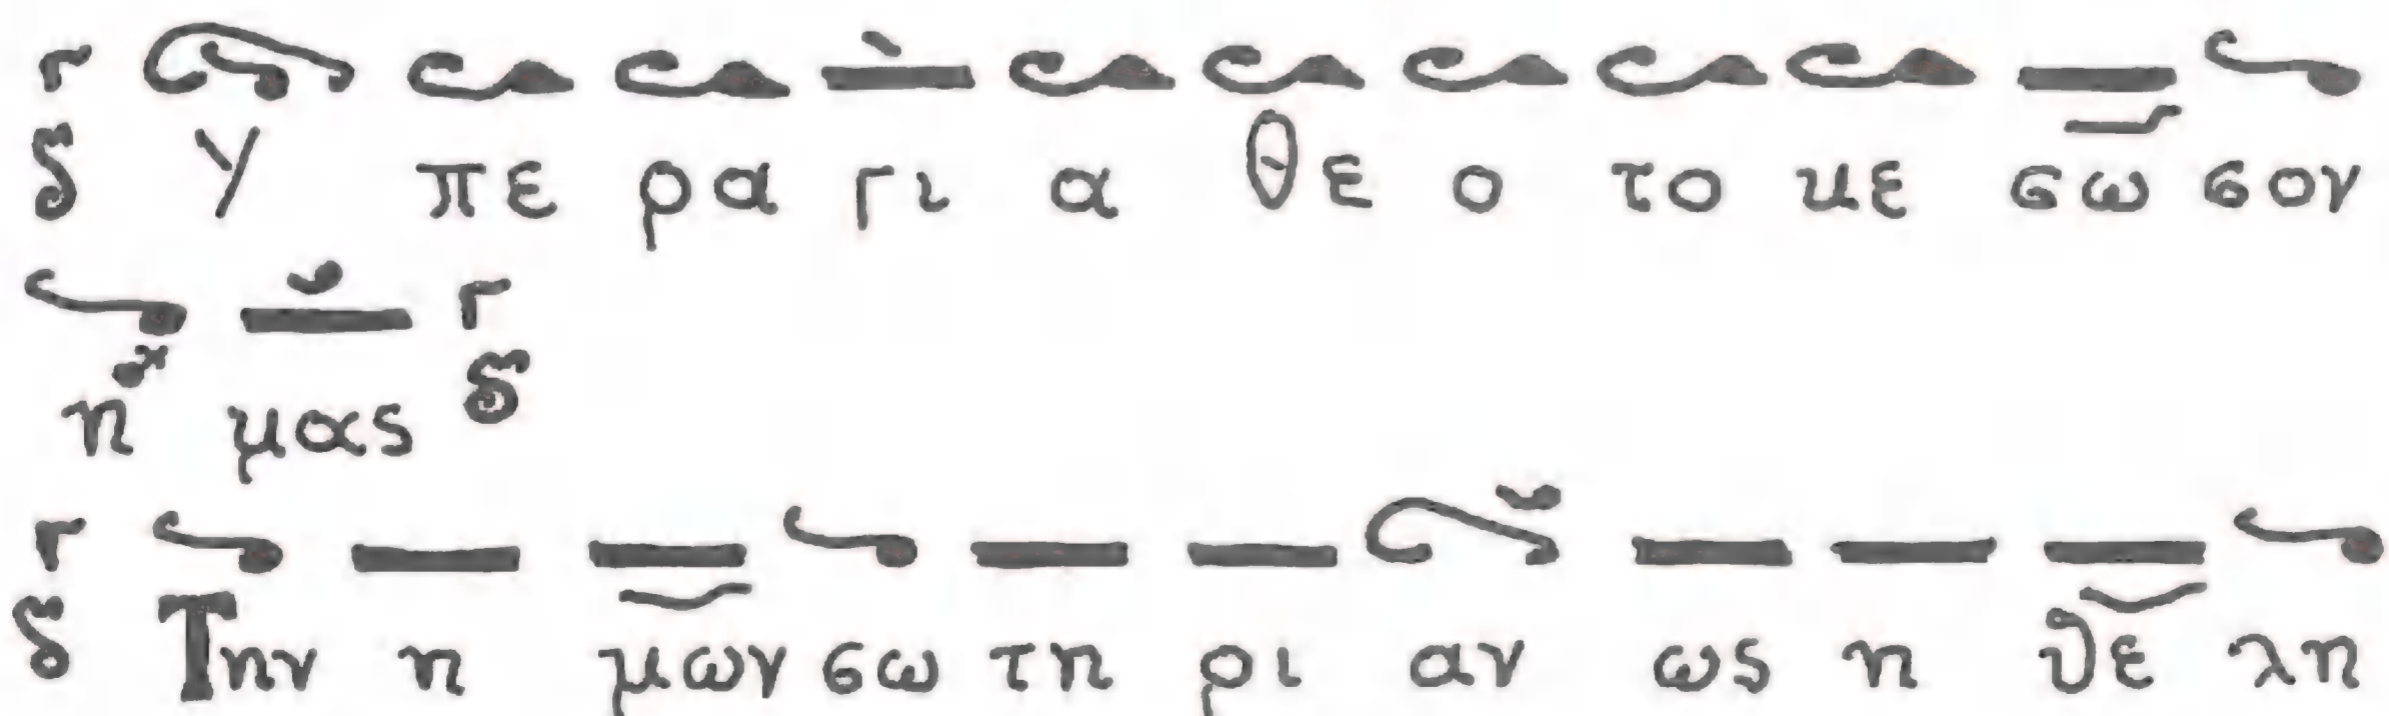 Υ πε ρα γι α θε ο το κε σω σον
η μας
Την η μων σω τη ρι αν ως η θε λη